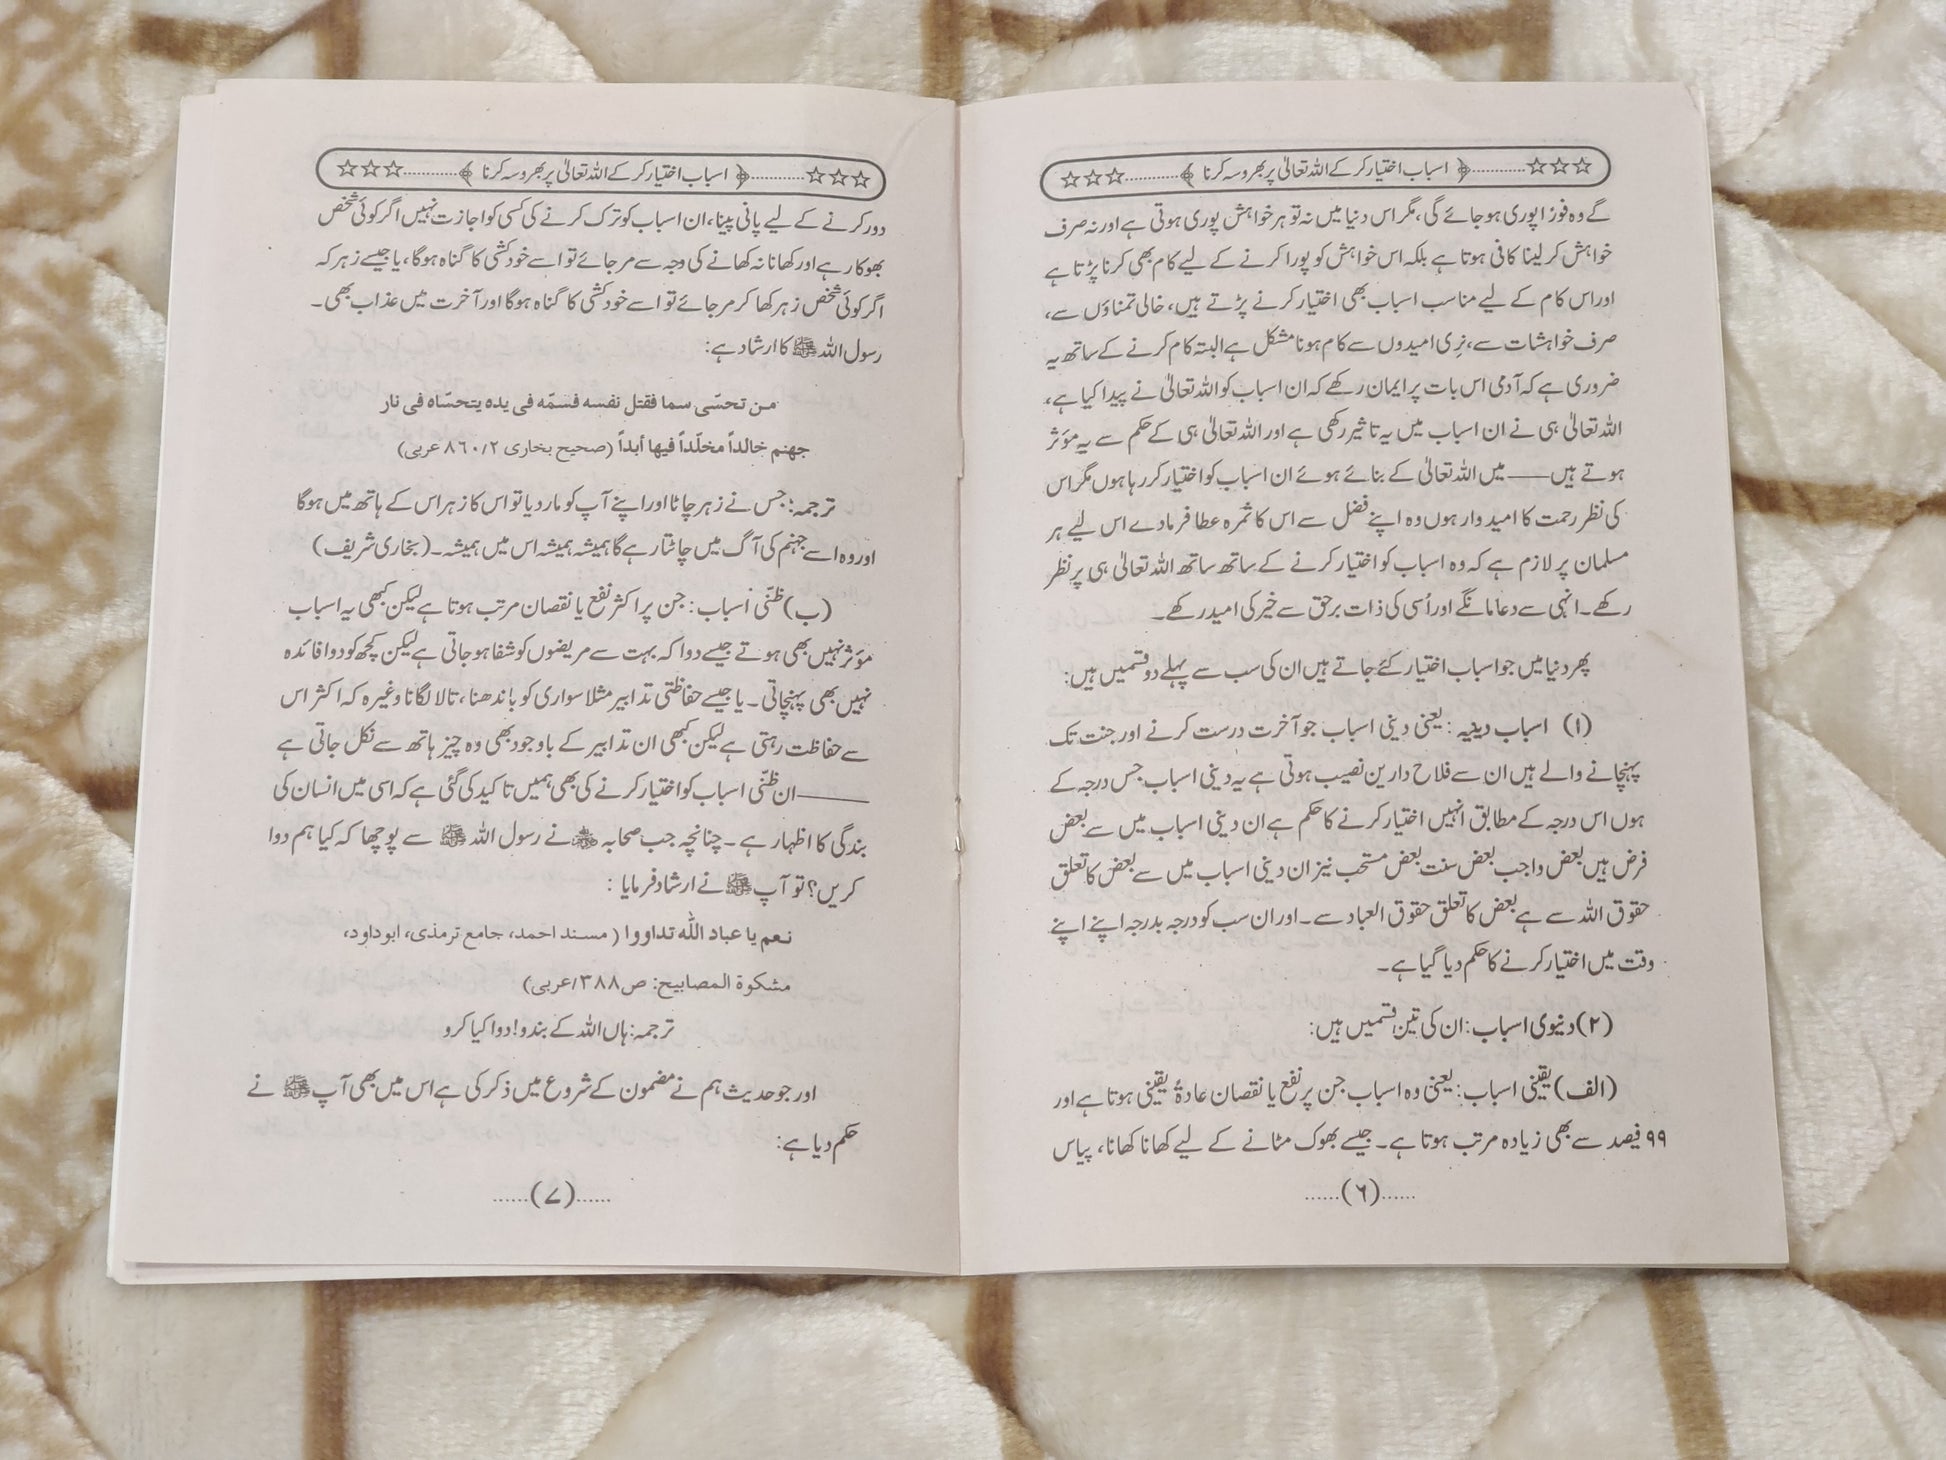 ☆☆☆............﴿ اسباب اختیار کر کے اللہ تعالیٰ پر بھروسہ کرنا ﴾............☆☆☆
گے وہ فوراً پوری ہو جائے گی، مگر اس دنیا میں نہ تو ہر خواہش پوری ہوتی ہے اور نہ صرف
خواہش کر لینا کافی ہوتا ہے بلکہ اس خواہش کو پورا کرنے کے لیے کام بھی کرنا پڑتا ہے
اور اس کام کے لیے مناسب اسباب بھی اختیار کرنے پڑتے ہیں، خالی تمناؤں سے،
صرف خواہشات سے، نِری امیدوں سے کام ہونا مشکل ہے البتہ کام کرنے کے ساتھ یہ
ضروری ہے کہ آدمی اس بات پر ایمان رکھے کہ ان اسباب کو اللہ تعالیٰ نے پیدا کیا ہے،
اللہ تعالیٰ ہی نے ان اسباب میں یہ تاثیر رکھی ہے اور اللہ تعالیٰ ہی کے حکم سے یہ مؤثر
ہوتے ہیں —— میں اللہ تعالیٰ کے بنائے ہوئے ان اسباب کو اختیار کر رہا ہوں مگر اس
کی نظر رحمت کا امیدوار ہوں وہ اپنے فضل سے اس کا ثمرہ عطا فرمادے اس لیے ہر
مسلمان پر لازم ہے کہ وہ اسباب کو اختیار کرنے کے ساتھ ساتھ اللہ تعالیٰ ہی پر نظر
رکھے۔ انہی سے دعا مانگے اور اُسی کی ذات برحق سے خیر کی امید رکھے۔
پھر دنیا میں جو اسباب اختیار کئے جاتے ہیں ان کی سب سے پہلے دو قسمیں ہیں:
(۱) اسباب دینیہ: یعنی دینی اسباب جو آخرت درست کرنے اور جنت تک
پہنچانے والے ہیں ان سے فلاح دارین نصیب ہوتی ہے یہ دینی اسباب جس درجہ کے
ہوں اس درجہ کے مطابق انہیں اختیار کرنے کا حکم ہے ان دینی اسباب میں سے بعض
فرض ہیں بعض واجب بعض سنت بعض مستحب نیز ان دینی اسباب میں سے بعض کا تعلق
حقوق اللہ سے ہے بعض کا تعلق حقوق العباد سے۔ اور ان سب کو درجہ بدرجہ اپنے اپنے
وقت میں اختیار کرنے کا حکم دیا گیا ہے۔
(۲) دنیوی اسباب: ان کی تین قسمیں ہیں:
(الف) یقینی اسباب: یعنی وہ اسباب جن پر نفع یا نقصان عادۃً یقینی ہوتا ہے اور
۹۹ فیصد سے بھی زیادہ مرتب ہوتا ہے۔ جیسے بھوک مٹانے کے لیے کھانا کھانا، پیاس
......(۶)......
☆☆☆............﴿ اسباب اختیار کر کے اللہ تعالیٰ پر بھروسہ کرنا ﴾............☆☆☆
دور کرنے کے لیے پانی پینا، ان اسباب کو ترک کرنے کی کسی کو اجازت نہیں اگر کوئی شخص
بھوکا رہے اور کھانا نہ کھانے کی وجہ سے مر جائے تو اسے خودکشی کا گناہ ہوگا، یا جیسے زہر کہ
اگر کوئی شخص زہر کھا کر مر جائے تو اسے خودکشی کا گناہ ہوگا اور آخرت میں عذاب بھی۔
رسول اللہ ﷺ کا ارشاد ہے:
من تحسّی سما فقتل نفسه فسمّه فی یده یتحساه فی نار
جهنم خالداً مخلّداً فیها أبداً (صحیح بخاری ۸۶۰/۲ عربی)
ترجمہ: جس نے زہر چاٹا اور اپنے آپ کو مار دیا تو اس کا زہر اس کے ہاتھ میں ہوگا
اور وہ اسے جہنم کی آگ میں چاٹتا رہے گا ہمیشہ ہمیشہ اس میں ہمیشہ۔ (بخاری شریف)
(ب) ظنّی اسباب: جن پر اکثر نفع یا نقصان مرتب ہوتا ہے لیکن کبھی یہ اسباب
مؤثر نہیں بھی ہوتے جیسے دوا کہ بہت سے مریضوں کو شفا ہو جاتی ہے لیکن کچھ کو دوا فائدہ
نہیں بھی پہنچاتی۔ یا جیسے حفاظتی تدابیر مثلا سواری کو باندھنا، تالا لگانا وغیرہ کہ اکثر اس
سے حفاظت رہتی ہے لیکن کبھی ان تدابیر کے باوجود بھی وہ چیز ہاتھ سے نکل جاتی ہے
—— ان ظنّی اسباب کو اختیار کرنے کی بھی ہمیں تاکید کی گئی ہے کہ اسی میں انسان کی
بندگی کا اظہار ہے۔ چنانچہ جب صحابہ ؓ نے رسول اللہ ﷺ سے پوچھا کہ کیا ہم دوا
کریں؟ تو آپ ﷺ نے ارشاد فرمایا :
نعم یا عباد اللّٰہ تداووا ( مسند احمد، جامع ترمذی، ابوداود،
مشکوة المصابیح: ص۳۸۸/عربی)
ترجمہ: ہاں اللہ کے بندو! دوا کیا کرو
اور جو حدیث ہم نے مضمون کے شروع میں ذکر کی ہے اس میں بھی آپ ﷺ نے
حکم دیا ہے:
......(۷)......